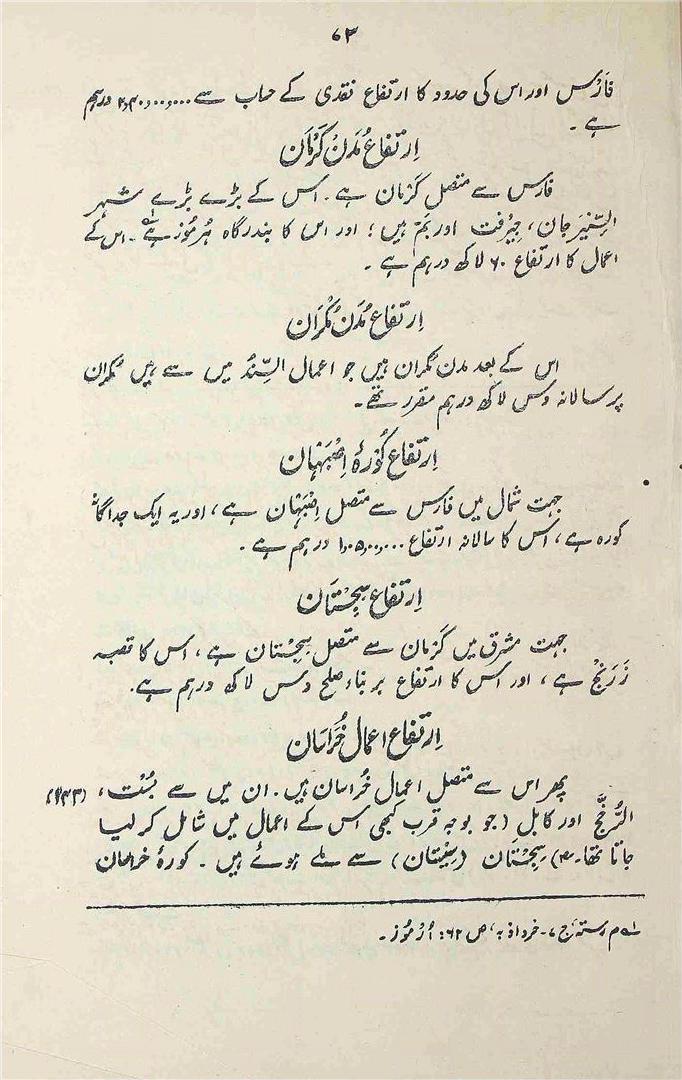 ۶۳
فَارْس اور اس کی حدود کا ارتفاع نقدی کے حساب سے ۲,۴۰,۰۰,۰۰۰ درہم
ہے ۔
اِرتفاعِ مُدَنْ کَرْمَان
فارس سے متصل کَرْمان ہے ۔ اس کے بڑے بڑے شہر
السِّیْرَجان، جِیْرُفت اور بَمّ ہیں ؛ اور اس کا بندرگاہ ہُرمُوز ہے ۱ے ۔ اس کے
اعمال کا ارتفاع ۶۰ لاکھ درہم ہے ۔
اِرتفاع مُدَن مُکْران
اس کے بعد مدن مُکران ہیں جو اعمال السِّند میں سے ہیں مُکران
پر سالانہ دس لاکھ درہم مقرر تھے۔
اِرتفاع کُوْرۂ اِصْبَہَان
جہت شمال میں فارس سے متصل اِصْبَہَان ہے، اور یہ ایک جداگانہ
کورہ ہے، اس کا سالانہ ارتفاع ۱,۰۵,۰۰,۰۰۰ درہم ہے ۔
اِرتفاع سِجِسْتَان
جہت مشرق میں کَرْمان سے متصل سِجِسْتان ہے، اس کا قصبہ
زَرَنْج ہے، اور اس کا ارتفاع بر بناء صلح دس لاکھ درہم ہے۔
اِرتفاع اعمال خُرَاسَان
پھر اس سے متصل اعمال خُراسان ہیں۔ ان میں سے بُسْت، (۲۴۳)
الرُّخَّج اور کابل (جو بوجہ قرب کبھی اس کے اعمال میں شامل کر لیا
جاتا تھا۔ م) سِجِسْتَان (سِیْستان) سے ملے ہوئے ہیں ۔ کورۂ خراسان
۱ے م رستہ، ج ۷۔ خرداذبہ، ص ۶۲: اُرْمُوز ۔